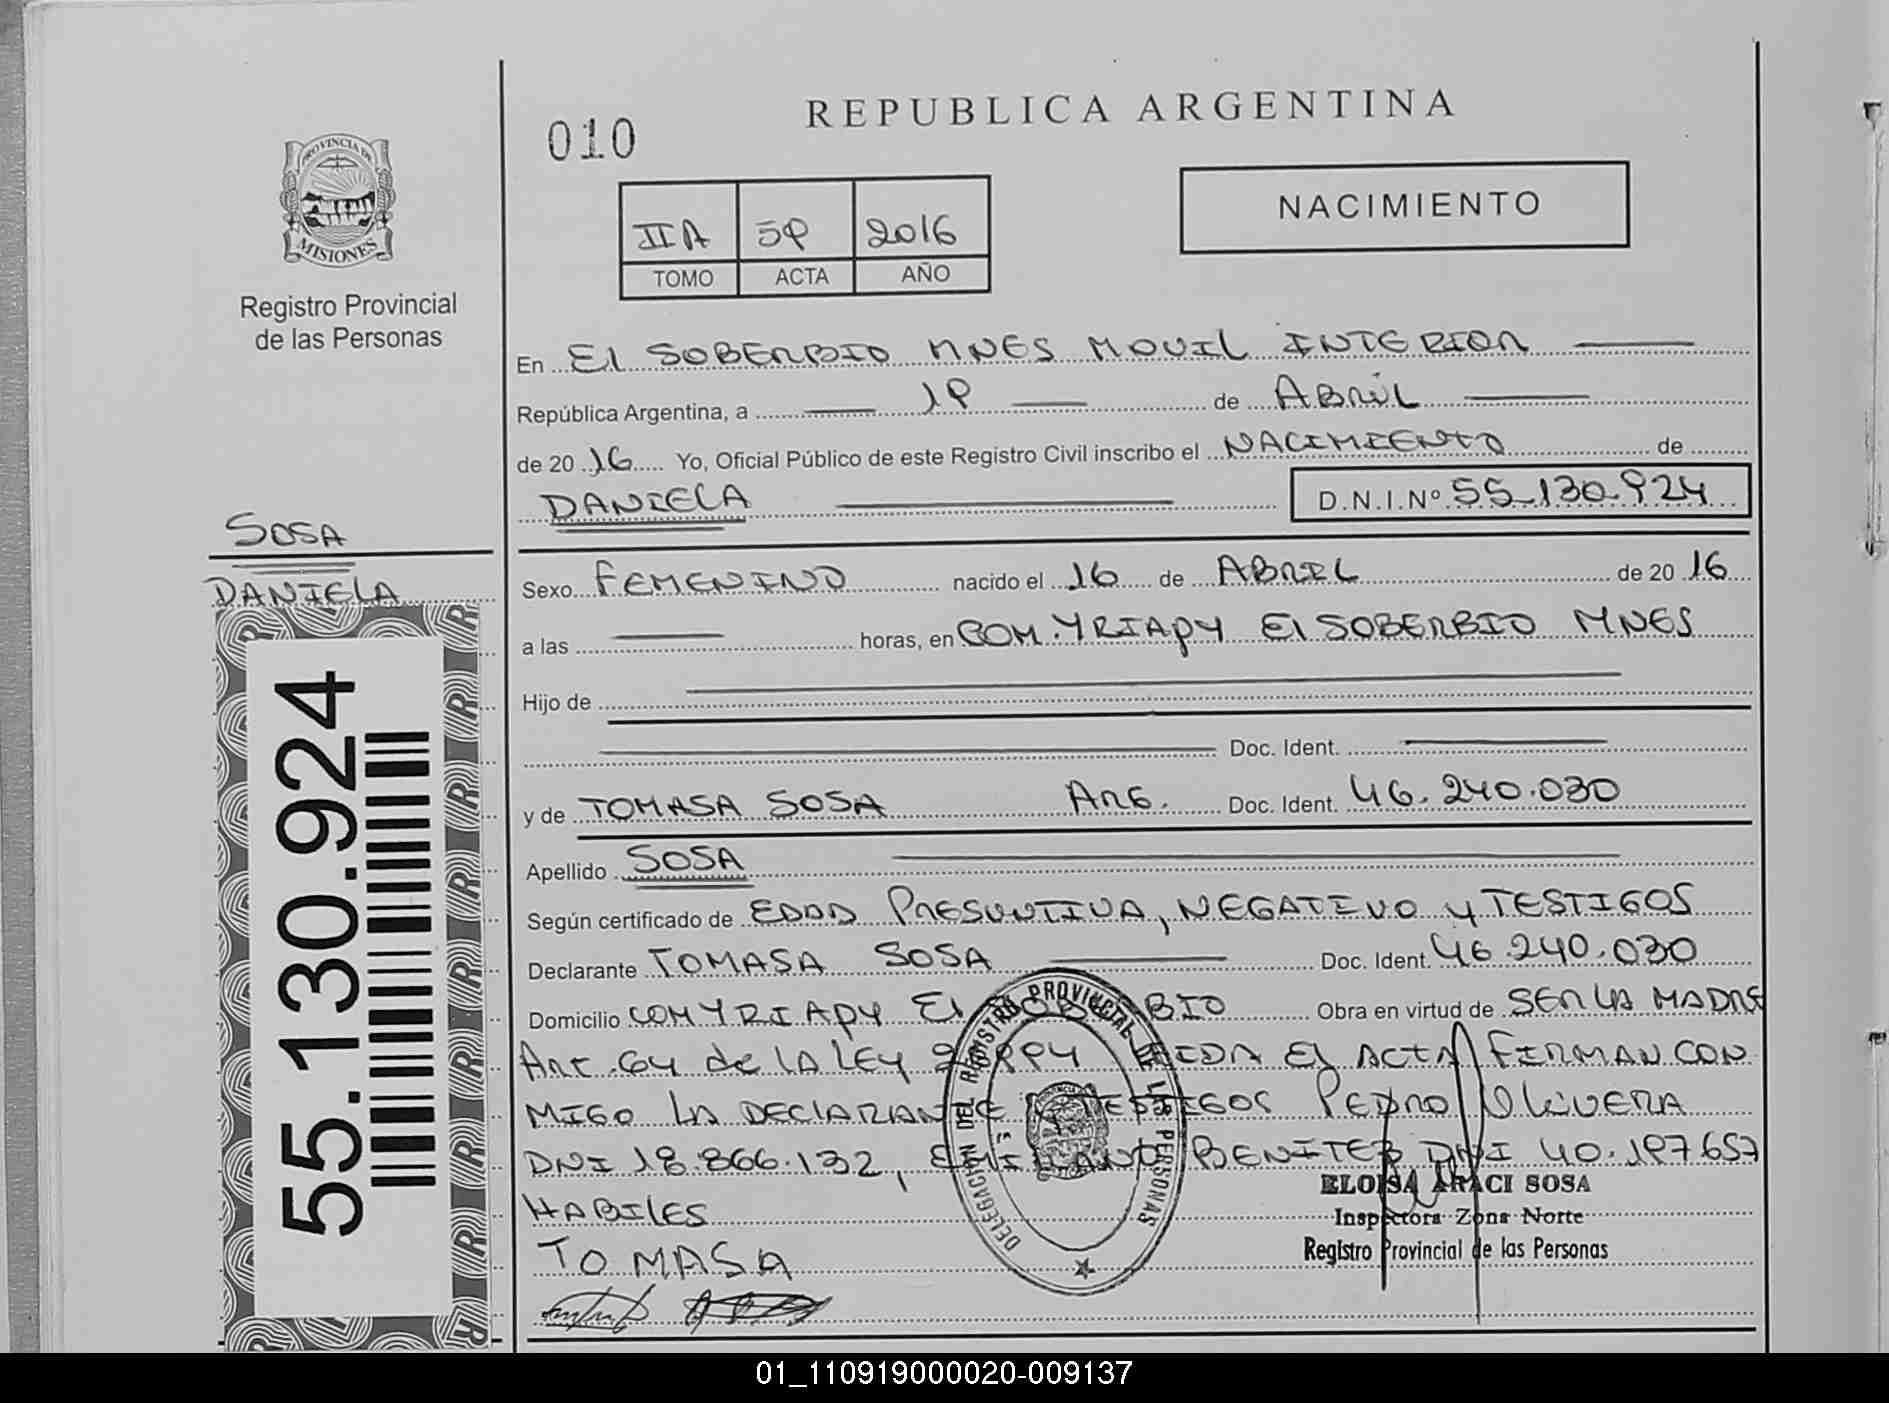 010
REPUBLICA ARGENTINA
PROVINCIA DE
MISIONES
Registro Provincial
de las Personas
IIA 59 2016
TOMO ACTA AÑO
NACIMIENTO
En El SOBERBIO MNES MOVIL INTERIOR
República Argentina, a 19 de ABRIL
de 20 16 Yo, Oficial Público de este Registro Civil inscribo el NACIMIENTO de
DANIELA D.N.I.Nº 55.130.924
SOSA
DANIELA
Sexo FEMENINO nacido el 16 de ABRIL de 20 16
a las horas, en COM. YRIAPY El SOBERBIO MNES
Hijo de
Doc. Ident.
y de TOMASA SOSA ARG. Doc. Ident. 46.240.030
Apellido SOSA
Según certificado de EDAD PRESUNTIVA, NEGATIVO y TESTIGOS
Declarante TOMASA SOSA Doc. Ident. 46.240.030
Domicilio COM YRIAPY El SOBERBIO Obra en virtud de SER LA MADRE
ART. 64 de LA LEY EL ACTA FIRMAN CON
MIGO LA DECLARANTE TESTIGOS PEDRO OLIVERA
DNI 18.866.132, EMILIANO BENITEZ DNI 40.197.657
HABILES
TOMASA
55.130.924
DELEGACION DEL REGISTRO PROVINCIAL DE LAS PERSONAS
ELOISA ARACI SOSA
Inspectora Zona Norte
Registro Provincial de las Personas
01_110919000020-009137